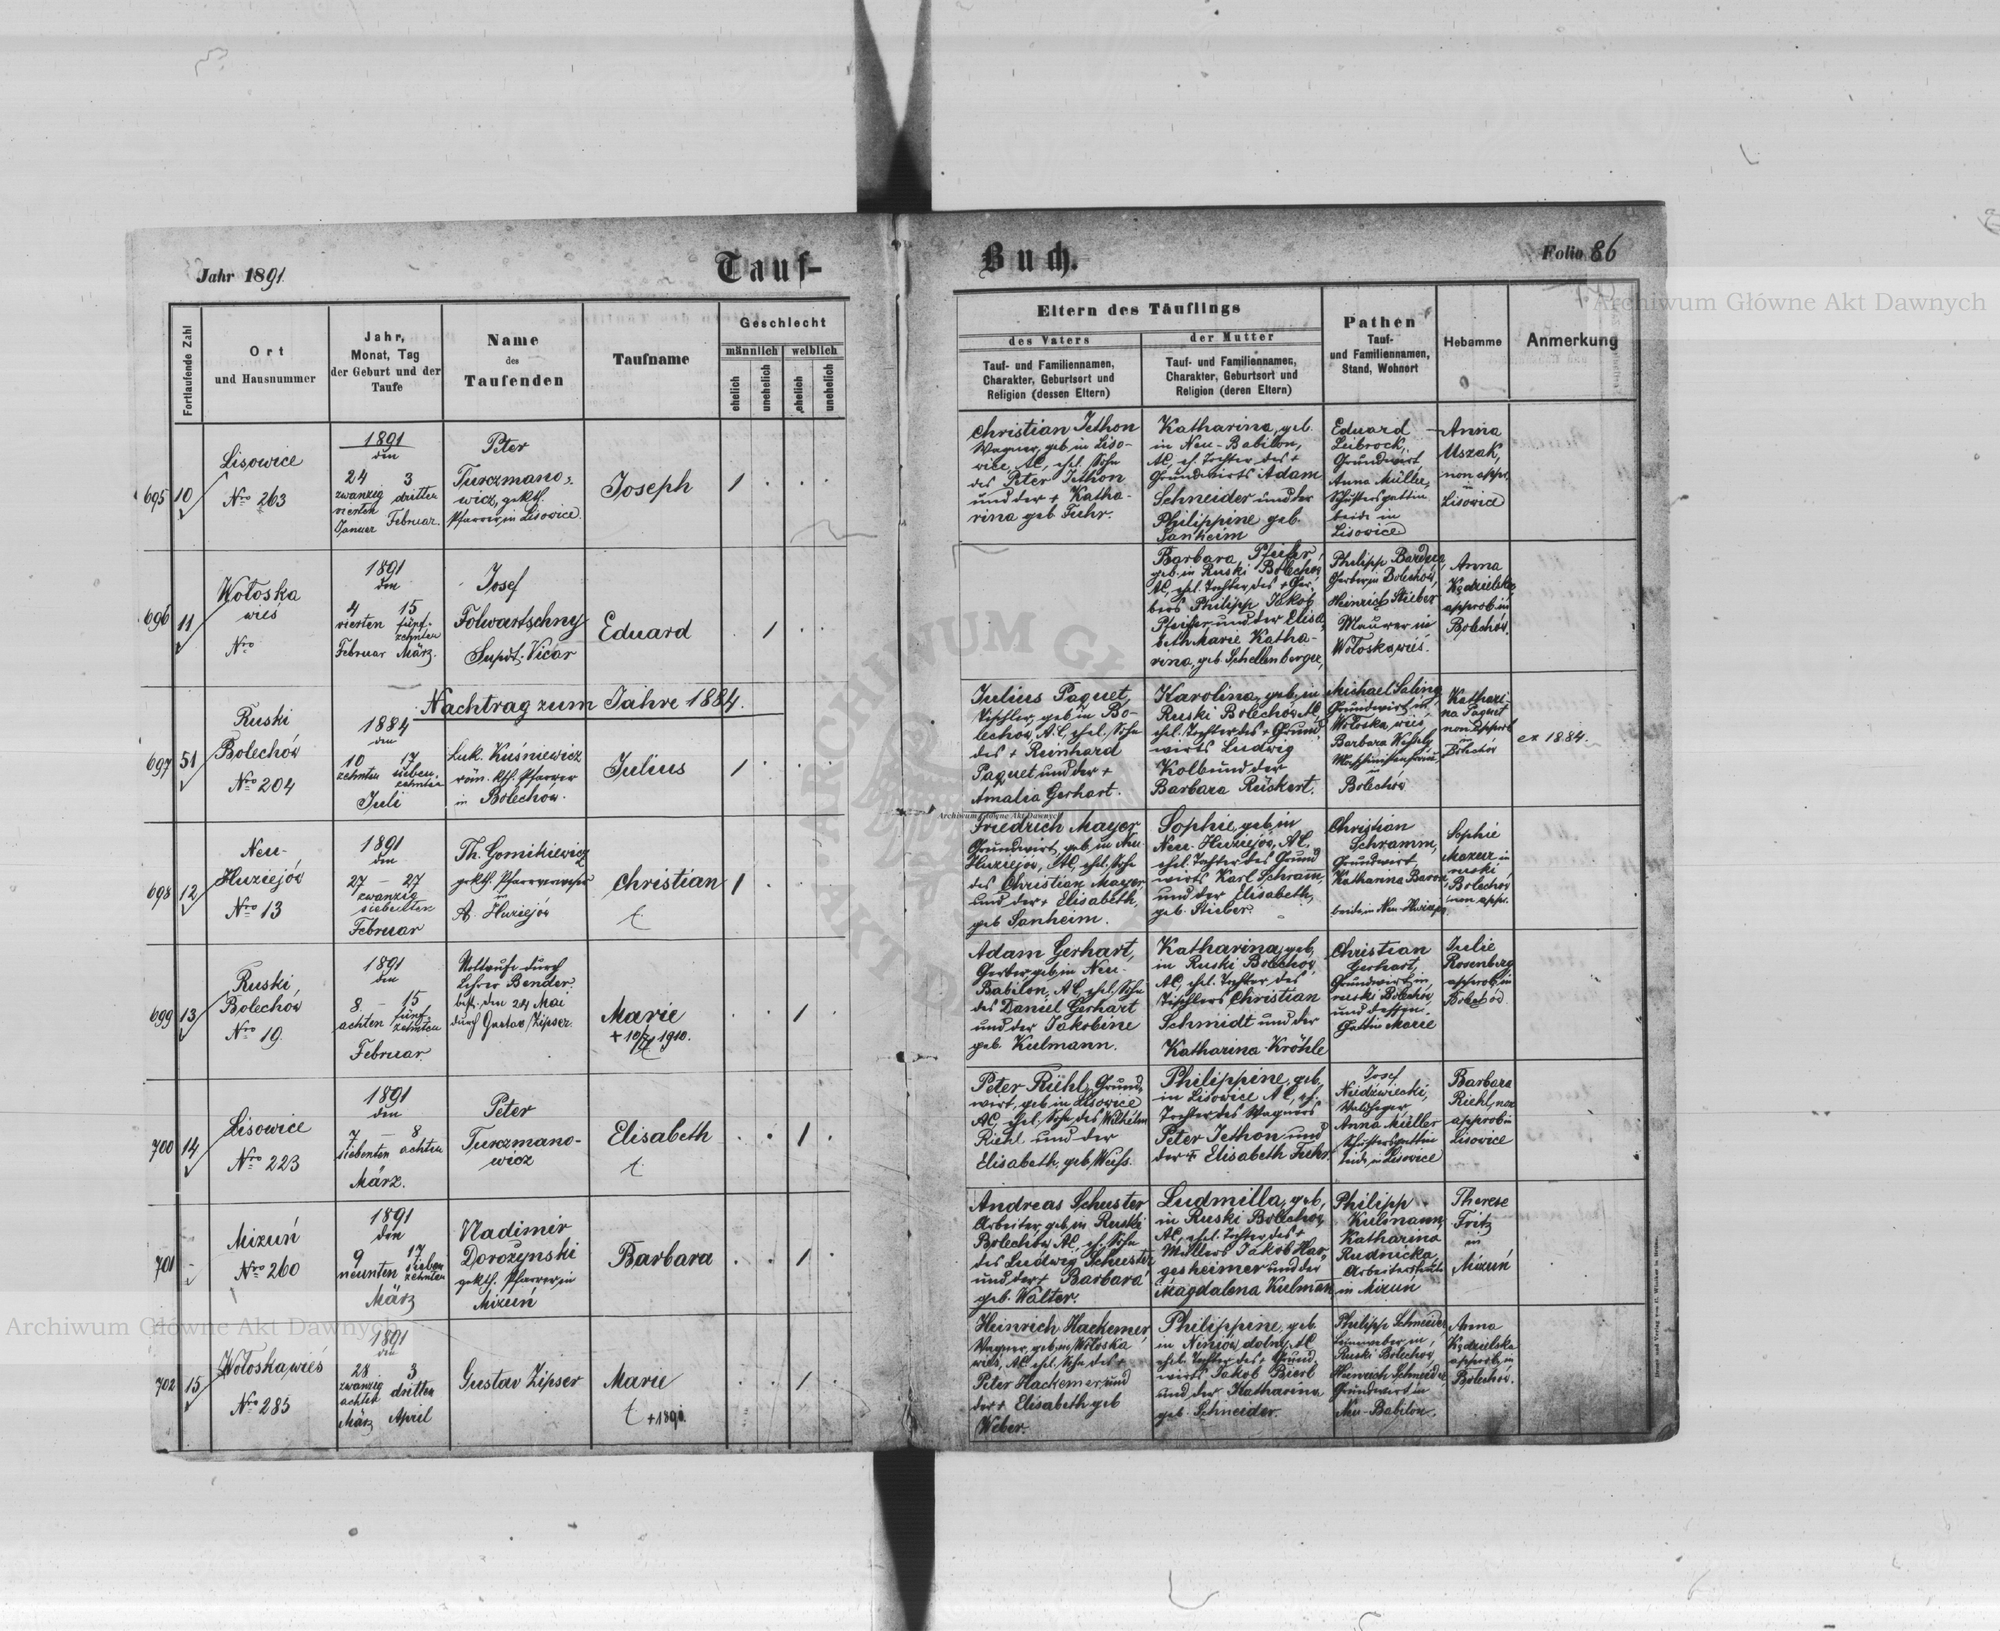 Jahr 1891.
Tauf-
Buch.
Folio 86
Fortlaufende Zahl
Ort
und Hausnummer
Jahr,
Monat, Tag
der Geburt und der
Taufe
Name
des
Taufenden
Taufname
Geschlecht
männlich
weiblich
ehelich
unehelich
ehelich
unehelich
Eltern des Täuflings
des Vaters
Tauf- und Familiennamen,
Charakter, Geburtsort und
Religion (dessen Eltern)
der Mutter
Tauf- und Familiennamen,
Charakter, Geburtsort und
Religion (deren Eltern)
Pathen
Tauf-
und Familiennamen,
Stand, Wohnort
Hebamme
Anmerkung
695
10
Lisowice
Nro 263
1891
den
24 3
zwanzig dritten
vierten
Januer Februar.
Peter
Turczmano-
wicz, gr. kth.
Pfarrer in Lisowice.
Joseph
1
Christian Jethon
Wagner, geb. in Liso-
wice, AC, ehel. Sohn
des Peter Jethon
und der + Katha-
rina geb. Fuhr.
Katharina, geb.
in Neu-Babilon,
AC, eh. Tochter des +
Grundwirts Adam
Schneider und der
Philippine geb.
Sanheim
Eduard
Leibrock,
Grundwirt
Anna Müller,
Schustersgattin
beide in
Lisowice
Anna
Uszak,
non appr.
in
Lisowice
696
11
Wołoska
wieś
Nro
1891
den
4 15
vierten fünf-
zehnten
Februar März.
Josef
Folwartschny
Supdt. Vicar
Eduard
1
Barbara Pfeifer,
geb. in Ruski Bolechów
AC, ehel. Tochter des + Ger-
bers Philipp Jakob
Pfeifer und der Elisa-
beth Marie Katha-
rina, geb. Schellenberger,
Philipp
Gerber in Bolechów,
Heinrich Stieber
Maurer in
Wołoska wieś.
Anna
Kędzielska
approb. in
Bolechów.
Nachtrag zum Jahre 1884.
697
51
Ruski
Bolechów
Nro 204
1884
den
10 17
zehnten sieben-
zehnten
Juli
Luk. Kuśniewicz
röm. kth. Pfarrer
in Bolechów.
Julius
1
Julius Paquet,
Tischler, geb. in Bo-
lechów, A.C, ehel. Sohn
des + Reinhard
Paquet und der +
Amalia Gerhart.
Karolina, geb. in
Ruski Bolechów AC,
ehel. Tochter des + Grund-
wirts Ludwig
Kolb und der
Barbara Rückert.
Michael Saling
Grundwirt in
Wołoska wieś,
Barbara Wessely
in
Bolechów
Kathari-
na Paquet
non approb
in
Bolechów
ex 1884.
698
12
Neu-
Huziejów
Nro 13
1891
den
27 – 27
zwanzig
siebenten
Februar
Th. Gornikiewicz
gr. kth. Pfarrverweser
in
A. Huziejów
Christian
1
Friedrich Mayer
Grundwirt, geb. in Neu-
Huziejów, AC, ehel. Sohn
des Christian Mayer
und der + Elisabeth,
geb. Sanheim.
Sophie, geb. in
Neu-Huziejów, AC,
ehel. Tochter des Grund-
wirts Karl Schramm,
und der Elisabeth,
geb. Stieber.
Christian
Schramm,
Grundwirt,
Katharina Baron
beide in Neu-Huziejów
Sophie
Mazur in
ruski
Bolechów
non appr.
699
13
Ruski
Bolechów
Nro 19.
1891
den
8. – 15
achten fünf-
zehnten
Februar.
Nottaufe durch
Lehrer Bender
best. den 24 Mai
durch Gustav Zipser.
Marie
1910.
1
Adam Gerhart,
Gerber, geb. in Neu-
Babilon, AC, ehel. Sohn
des Daniel Gerhart
und der Jakobine
geb. Kulmann.
Katharina, geb.
in Ruski Bolechów
AC, ehel. Tochter des
Tischlers Christian
Schmidt und der
Katharina Kröhle
Christian
Gerhart,
Grundwirt in
ruski Bolechów
und dessen
Gattin Marie
Julie
Rosenberg
approb. in
Bolechów.
700
14
Lisowice
Nro 223
1891
den
7 – 8
siebenten achten
März.
Peter
Turczmano-
wicz
Elisabeth
1
Peter Rühl, Grund-
wirt, geb. in Lisowice
AC, ehel. Sohn des Wilhelm
Riehl und der
Elisabeth, geb. Weiß.
Philippine, geb.
in Lisowice AC, eh.
Tochter des Wagners
Peter Jethon und
der + Elisabeth Fuhr
Josef
Niedzwiecki,
Waldheger,
Anna Müller
Schustersgattin
beide in Lisowice
Barbara
Riehl, non
approb in
Lisowice
701
Mizuń
Nro 260
1891
den
9 17
neunten sieben
zehnten
März
Vladimir
Dorożynski
gr. kth. Pfarrer, in
Mizuń
Barbara
1
Andreas Schuster
Arbeiter, geb. in Ruski
Bolechów AC, eh. Sohn
des Ludwig Schuster
und der + Barbara
geb. Walter.
Ludmilla, geb.
in Ruski Bolechów,
AC, ehel. Tochter des +
Müllers Jakob Har-
gesheimer und der
Magdalena Kulmann
Philipp
Kulmann,
Katharina
Rudnicka
Arbeitersleute
in Mizuń
Therese
Fritz
in
Mizuń
702
15
Wołoska wieś
Nro 285
1891
den
28 3
zwanzig dritten
achten
März April
Gustav Zipser
Marie
1
Heinrich Hackemer,
Wagner, geb. in Wołoska
wieś, AC, ehel. Sohn des +
Peter Hackemer, und
der + Elisabeth geb
Weber.
Philippine, geb.
in Niniów dolny, AC
ehel. Tochter des + Grund-
wirts Jakob Bierl
und der Katharina
geb. Schneider.
Philipp Schneider
in
Ruski Bolechów
Heinrich Schneider,
Grundwirt in
Neu-Babilon.
Anna
Kędzielska
approb. in
Bolechów.
Archiwum Główne Akt Dawnych
Archiwum Główne Akt Dawnych
Archiwum Główne Akt Dawnych